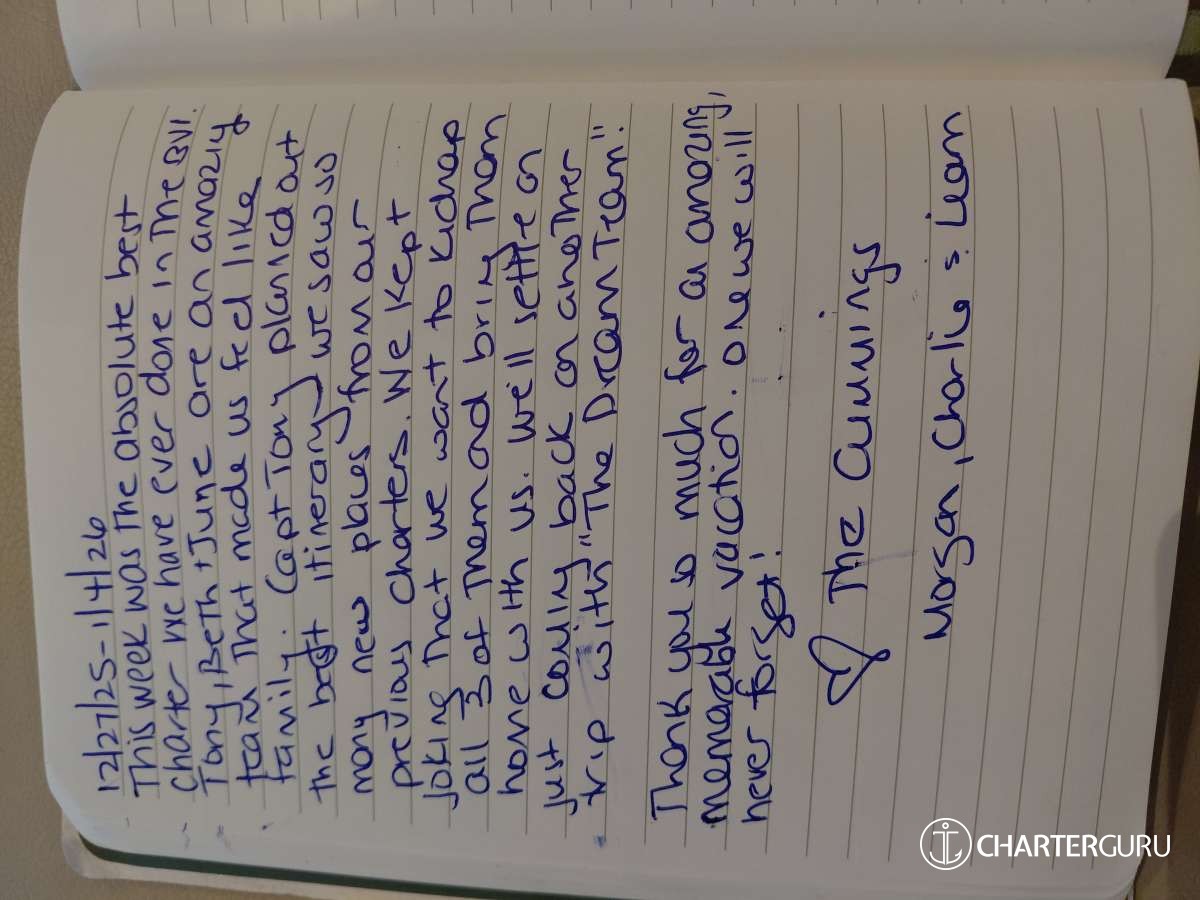 12/27/25-1/4/26
This week was the absolute best
charter we have ever done in the BVI.
Tony, Beth + June are an amazing
team that made us feel like
family. Capt Tony planned out
the best itinerary we saw so
many new places from our
previous charters. We kept
joking that we want to kidnap
all 3 of them and bring them
home with us. We'll settle on
just coming back on another
trip with "The Dream Team".
Thank you so much for an amazing,
memorable vacation. One we will
never forget!
♡ The Cummings
Morgan, Charlie & Liam
CHARTERGURU